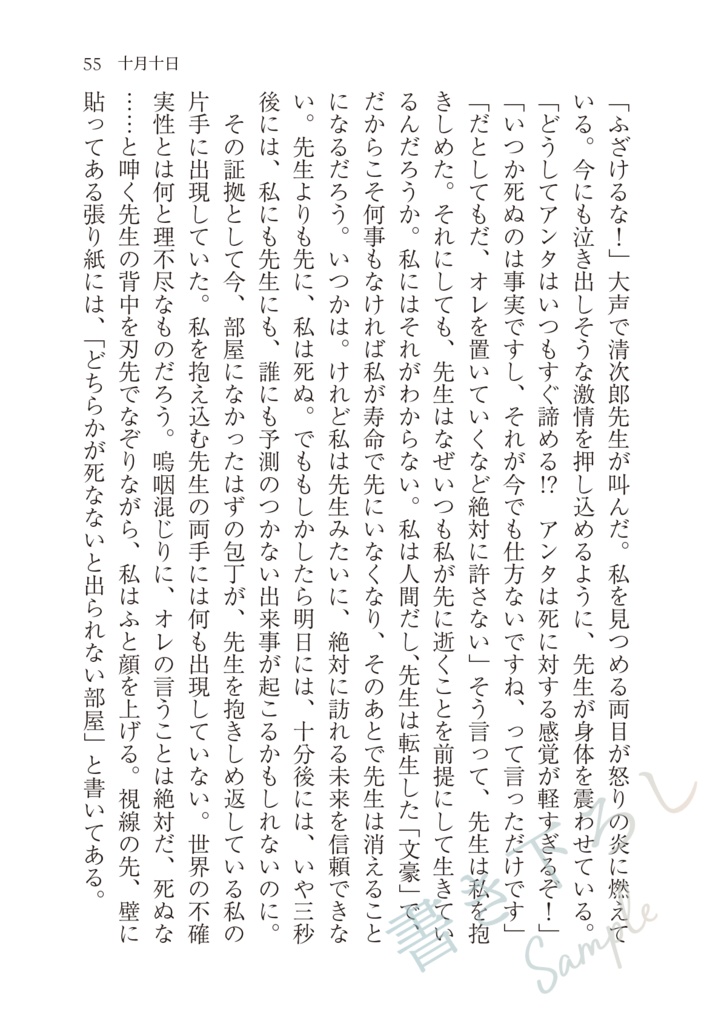 55　十月十日
「ふざけるな！」大声で清次郎先生が叫んだ。私を見つめる両目が怒りの炎に燃えて
いる。今にも泣き出しそうな激情を押し込めるように、先生が身体を震わせている。
「どうしてアンタはいつもすぐ諦める!?　アンタは死に対する感覚が軽すぎるぞ！」
「いつか死ぬのは事実ですし、それが今でも仕方ないですね、って言っただけです」
「だとしてもだ、オレを置いていくなど絶対に許さない」そう言って、先生は私を抱
きしめた。それにしても、先生はなぜいつも私が先に逝くことを前提にして生きてい
るんだろうか。私にはそれがわからない。私は人間だし、先生は転生した「文豪」で、
だからこそ何事もなければ私が寿命で先にいなくなり、そのあとで先生は消えること
になるだろう。いつかは。けれど私は先生みたいに、絶対に訪れる未来を信頼できな
い。先生よりも先に、私は死ぬ。でももしかしたら明日には、十分後には、いや三秒
後には、私にも先生にも、誰にも予測のつかない出来事が起こるかもしれないのに。
　その証拠として今、部屋になかったはずの包丁が、先生を抱きしめ返している私の
片手に出現していた。私を抱え込む先生の両手には何も出現していない。世界の不確
実性とは何と理不尽なものだろう。嗚咽混じりに、オレの言うことは絶対だ、死ぬな
……と呻く先生の背中を刃先でなぞりながら、私はふと顔を上げる。視線の先、壁に
貼ってある張り紙には、「どちらかが死なないと出られない部屋」と書いてある。
書き下ろし
Sample